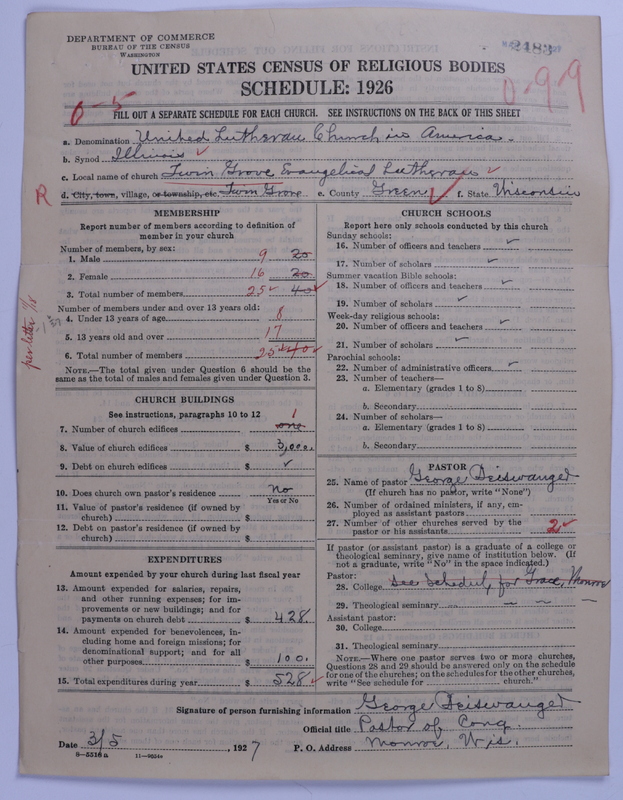 DEPARTMENT OF COMMERCE
BUREAU OF THE CENSUS
WASHINGTON
2483
UNITED STATES CENSUS OF RELIGIOUS BODIES
SCHEDULE: 1926
0-9-9
0-5
FILL OUT A SEPARATE SCHEDULE FOR EACH CHURCH. SEE INSTRUCTIONS ON THE BACK OF THIS SHEET
a. Denomination United Lutheran Church in America.
b. Synod Illinois ✓
c. Local name of church Twin Grove Evangelical Lutheran ✓
R d. City, town, village, or township, etc. Twin Grove e. County Green ✓ f. State Wisconsin
MEMBERSHIP
Report number of members according to definition of
member in your church
Number of members, by sex:
1. Male 9 20
2. Female 16 20
3. Total number of members 25 ✓ 40 ✓
Number of members under and over 13 years old:
4. Under 13 years of age 8
5. 13 years old and over 17
6. Total number of members 25 ✓ 40 ✓
per letter 1/15
NOTE.—The total given under Question 6 should be the
same as the total of males and females given under Question 3.
CHURCH BUILDINGS
See instructions, paragraphs 10 to 12
7. Number of church edifices 1 one
8. Value of church edifices $ 3,000.
9. Debt on church edifices $ ✓
10. Does church own pastor's residence No
Yes or No
11. Value of pastor's residence (if owned by
church) $
12. Debt on pastor's residence (if owned by
church) $
EXPENDITURES
Amount expended by your church during last fiscal year
13. Amount expended for salaries, repairs,
and other running expenses; for im-
provements or new buildings; and for
payments on church debt $ 428.
14. Amount expended for benevolences, in-
cluding home and foreign missions; for
denominational support; and for all
other purposes $ 100.
15. Total expenditures during year $ 528. ✓
CHURCH SCHOOLS
Report here only schools conducted by this church
Sunday schools:
16. Number of officers and teachers ✓
17. Number of scholars ✓
Summer vacation Bible schools:
18. Number of officers and teachers ✓
19. Number of scholars ✓
Week-day religious schools:
20. Number of officers and teachers ✓
21. Number of scholars ✓
Parochial schools:
22. Number of administrative officers ✓
23. Number of teachers—
a. Elementary (grades 1 to 8)
b. Secondary
24. Number of scholars—
a. Elementary (grades 1 to 8)
b. Secondary
PASTOR
25. Name of pastor George Beiswanger
(If church has no pastor, write "None")
26. Number of ordained ministers, if any, em-
ployed as assistant pastors
27. Number of other churches served by the
pastor or his assistants 2 ✓
If pastor (or assistant pastor) is a graduate of a college or
theological seminary, give name of institution below. (If
not a graduate, write "No" in the space indicated.)
Pastor:
28. College See Schedule for Grace, Monroe
29. Theological seminary — — —
Assistant pastor:
30. College
31. Theological seminary
NOTE.—Where one pastor serves two or more churches,
Questions 28 and 29 should be answered only on the schedule
for one of the churches; on the schedules for the other churches,
write "See schedule for ______ church."
Signature of person furnishing information George Beiswanger
Official title Pastor of Cong.
Date 3/5, 1927 P. O. Address Monroe, Wis.
8—5516a 11—9654a